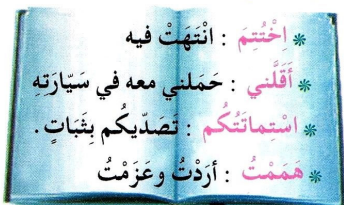 * اِخْتُتِمَ : انْتَهَتْ فيه
* أَقَلَّني : حَمَلني معه في سَيّارَتِهِ
* اسْتِماتَتُكُم : تصَدّيكُم بِثَبَاتٍ .
* هَمَمْتُ : أرَدْتُ وعَزَمْتُ